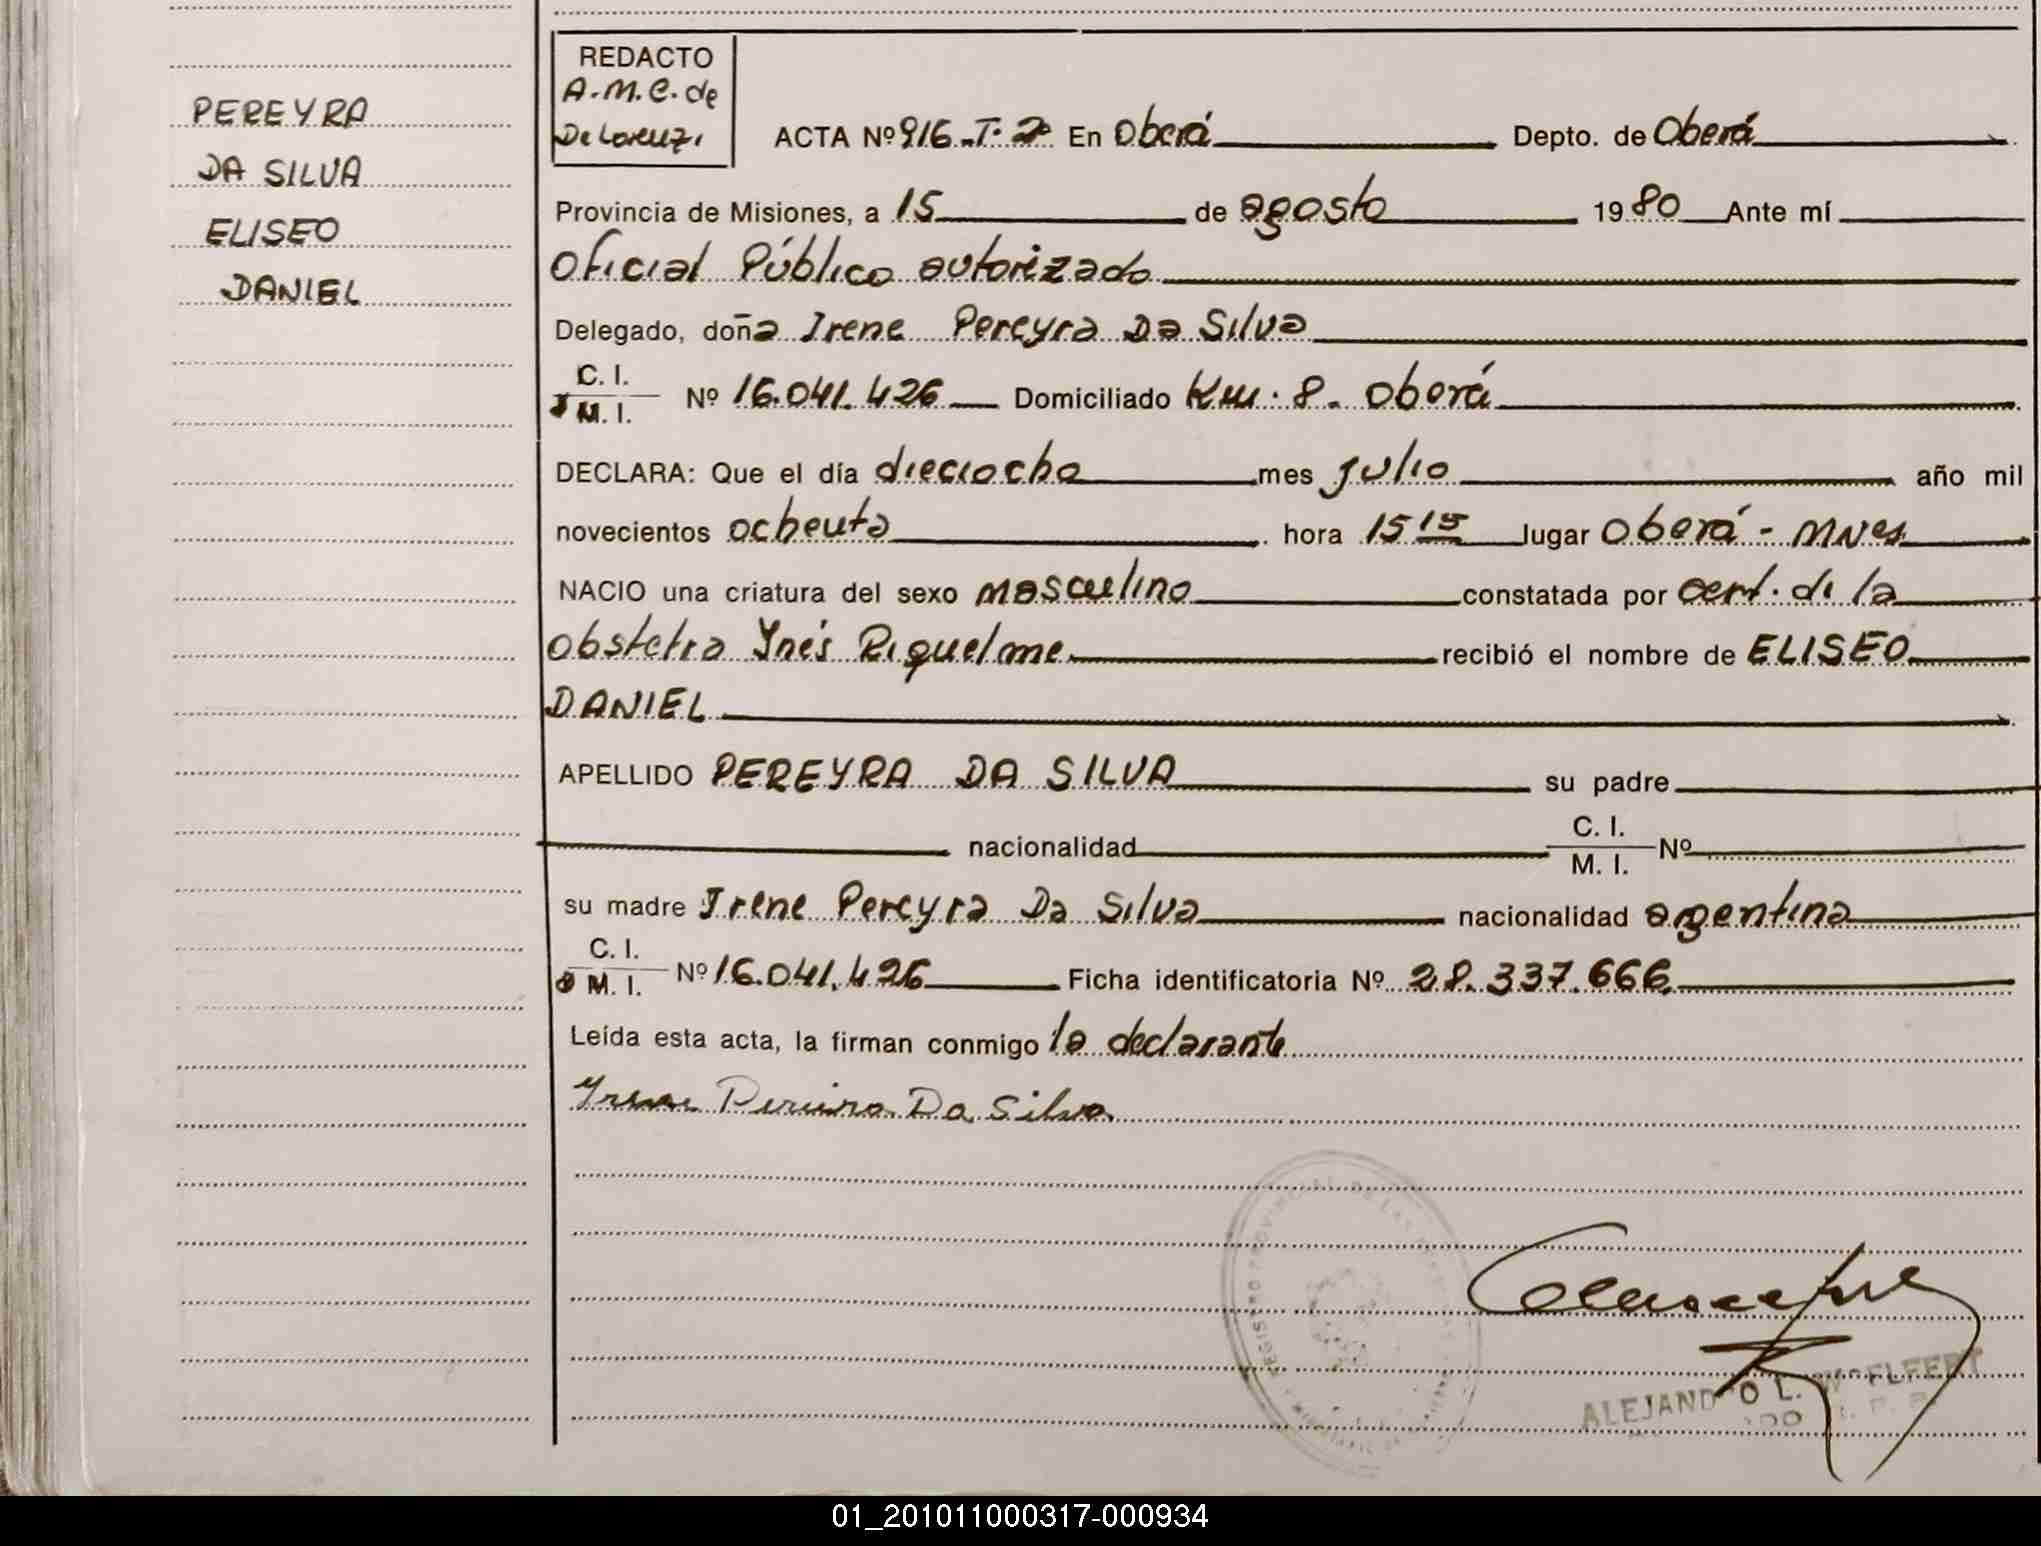 PEREYRA
DA SILVA
ELISEO
DANIEL
REDACTO
A.M.C. de
De Lorenzi
ACTA Nº 916-T.2º En Oberá Depto. de Oberá
Provincia de Misiones, a 15 de agosto 1980 Ante mí
Oficial Público autorizado
Delegado, doña Irene Pereyra Da Silva
C. I.
M. I. Nº 16.041.426 Domiciliado Km. 8. Oberá
DECLARA: Que el día dieciocho mes julio año mil
novecientos ochenta hora 15 15 lugar Oberá - Mnes
NACIO una criatura del sexo masculino constatada por cert. de la
obstetra Ynés Riquelme recibió el nombre de ELISEO
DANIEL
APELLIDO PEREYRA DA SILVA su padre
nacionalidad C. I. M. I. Nº
su madre Irene Pereyra Da Silva nacionalidad argentina
C. I.
M. I. Nº 16.041.426 Ficha identificatoria Nº 28.337.666
Leída esta acta, la firman conmigo la declarante
Irene Pereira Da Silva
REGISTRO PROVINCIAL DE LAS PERSONAS
ALEJANDRO L. WOELFERT
01_201011000317-000934